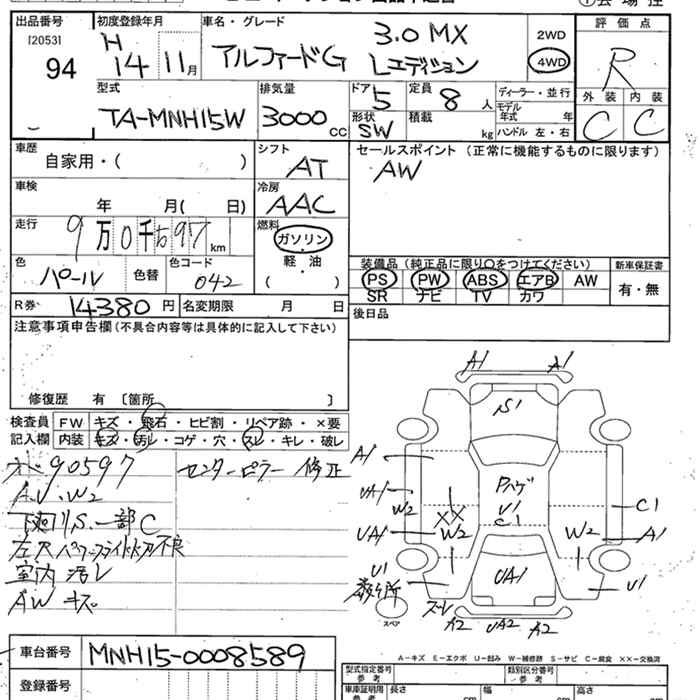 ① 会 場 控
出品番号
[2053]
94
初度登録年月
H
14 11 月
車名・グレード
アルファードG 3.0 MX
Lエディション
2WD
4WD
評 価 点
R
外 装 内 装
C C
型式
TA-MNH15W
排気量
3000 cc
ドア 5
形状
SW
定員 8 人
積載 kg
ディーラー・並行
モデル
年式 年
ハンドル 左・右
車歴
自家用・( )
シフト
AT
セールスポイント (正常に機能するものに限ります)
AW
車検
年 月( 日)
冷房
AAC
走行
9 万 0 千 597 km
燃料
ガソリン
軽・油
( )
色
パール
色替
色コード
042
装備品 (純正品に限り○をつけてください)
PS PW ABS エアB AW
SR ナビ TV カワ
新車保証書
有・無
R券 14380 円
名変期限 月 日
後日品
注意事項申告欄(不具合内容等は具体的に記入して下さい)
修復歴 有 〔箇所 〕
検査員
記入欄
FW キズ・飛石・ヒビ割・リペア跡・×要
内装 キズ・汚レ・コゲ・穴・スレ・キレ・破レ
90597
センターピラー 修正
A.U.W2
下廻りS.一部C
左リヤパワースライドドア不良
室内 汚レ
AW キズ
A1 A1
S1
A1
UA1
W2
UA1
XX
W2
Pハゲ
U1
C1
W2
C1
A1
U1
UA1
U1
スレ
A2 UA2 A2
スペア
A−キズ E−エクボ U−凹み W−補修跡 S−サビ C−腐食 ××−交換済
車台番号
MNH15-0008589
登録番号
型式指定番号
参 考
類別区分番号
参 考
車庫証明用
参 考
長さ cm
幅 cm
高さ cm